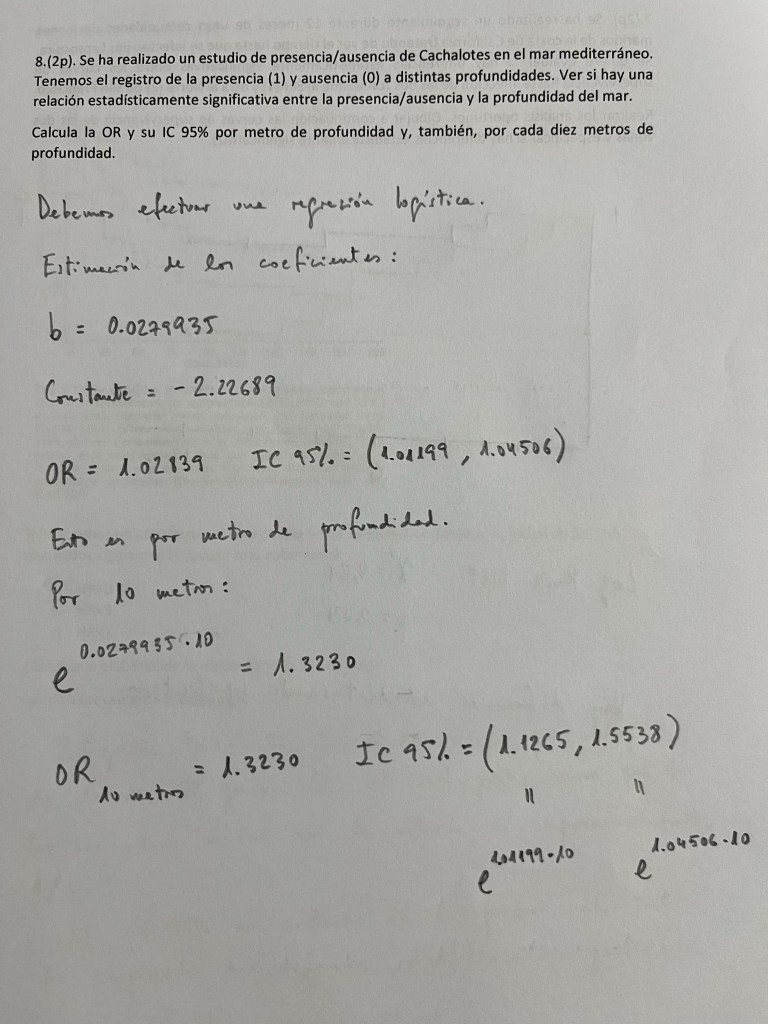 8.(2p). Se ha realizado un estudio de presencia/ausencia de Cachalotes en el mar mediterráneo.
Tenemos el registro de la presencia (1) y ausencia (0) a distintas profundidades. Ver si hay una
relación estadísticamente significativa entre la presencia/ausencia y la profundidad del mar.
Calcula la OR y su IC 95% por metro de profundidad y, también, por cada diez metros de
profundidad.
Debemos efectuar una regresión logística.
Estimación de los coeficientes:
b = 0.0279935
Constante = -2.22689
OR = 1.02839 IC 95% = (1.01199, 1.04506)
Esto es por metro de profundidad.
Por 10 metros:
e^0.0279935·10 = 1.3230
OR 10 metros = 1.3230 IC 95% = (1.1265, 1.5538)
= =
e^1.01199·10 e^1.04506·10